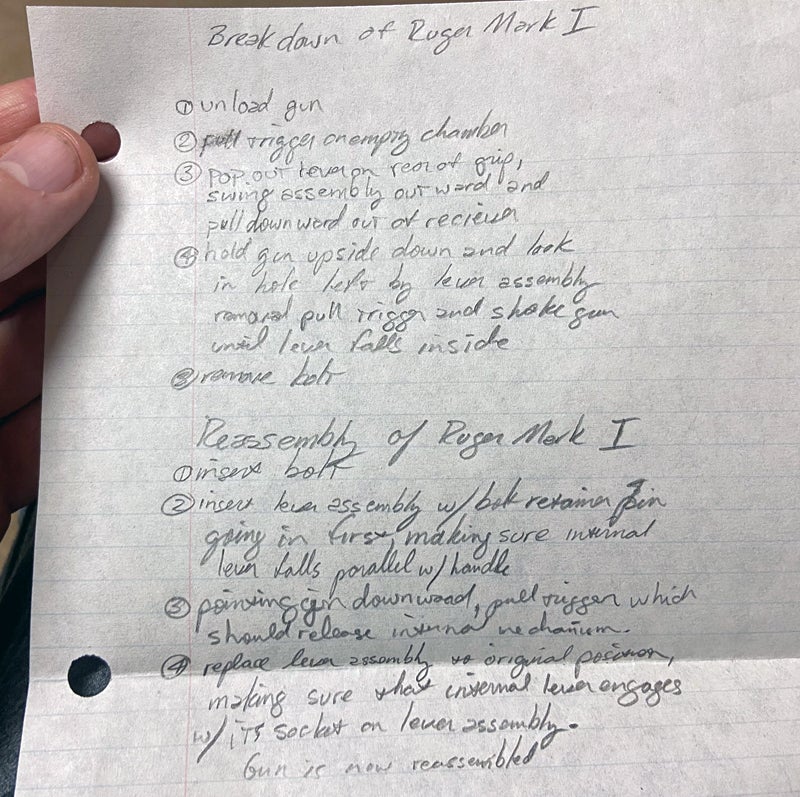 Breakdown of Ruger Mark I
① unload gun
② pull trigger on empty chamber
③ pop out lever on rear of grip,
swing assembly outward and
pull downward out of reciever
④ hold gun upside down and look
in hole left by lever assembly
removal pull trigger and shake gun
until lever falls inside
⑤ remove bolt
Reassembly of Ruger Mark I
① insert bolt
② insert lever assembly w/ bolt retainer pin
going in first, making sure internal
lever falls parallel w/ handle
③ pointing gun downward, pull trigger which
should release internal mechanism.
④ replace lever assembly to original position,
making sure that internal lever engages
w/ its socket on lever assembly.
Gun is now reassembled